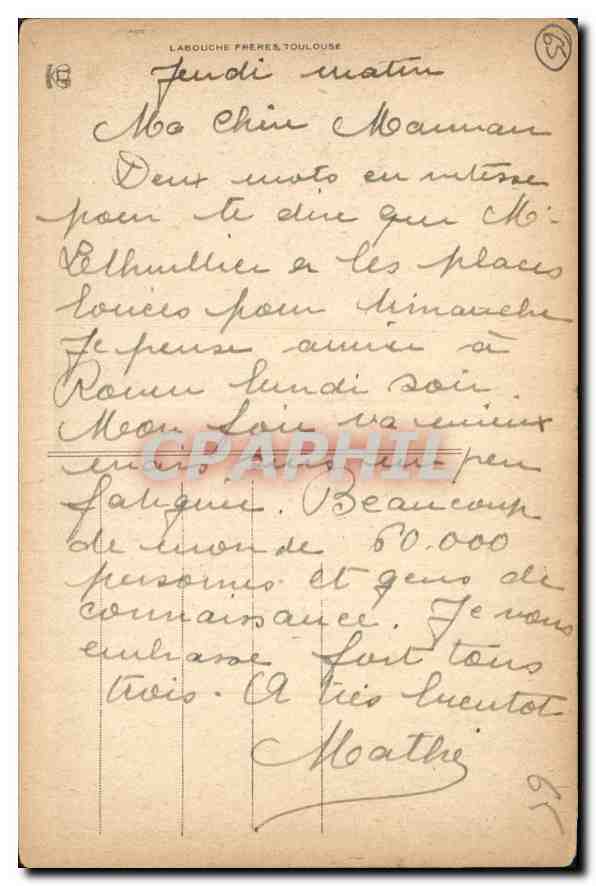 LABOUCHE FRÈRES, TOULOUSE
65
Jeudi matin
Ma Chère Maman
Deux mots en vitesse
pour te dire que Mr
Lethuillier a les places
louées pour dimanche
Je pense arriver à
Rouen lundi soir.
Mon foie va mieux
mais suis un peu
fatiguée. Beaucoup
de monde 60.000
personnes et gens de
connaissance. Je vous
embrasse fort tous
trois. A très bientôt
Mathé
CPAPHIL
65